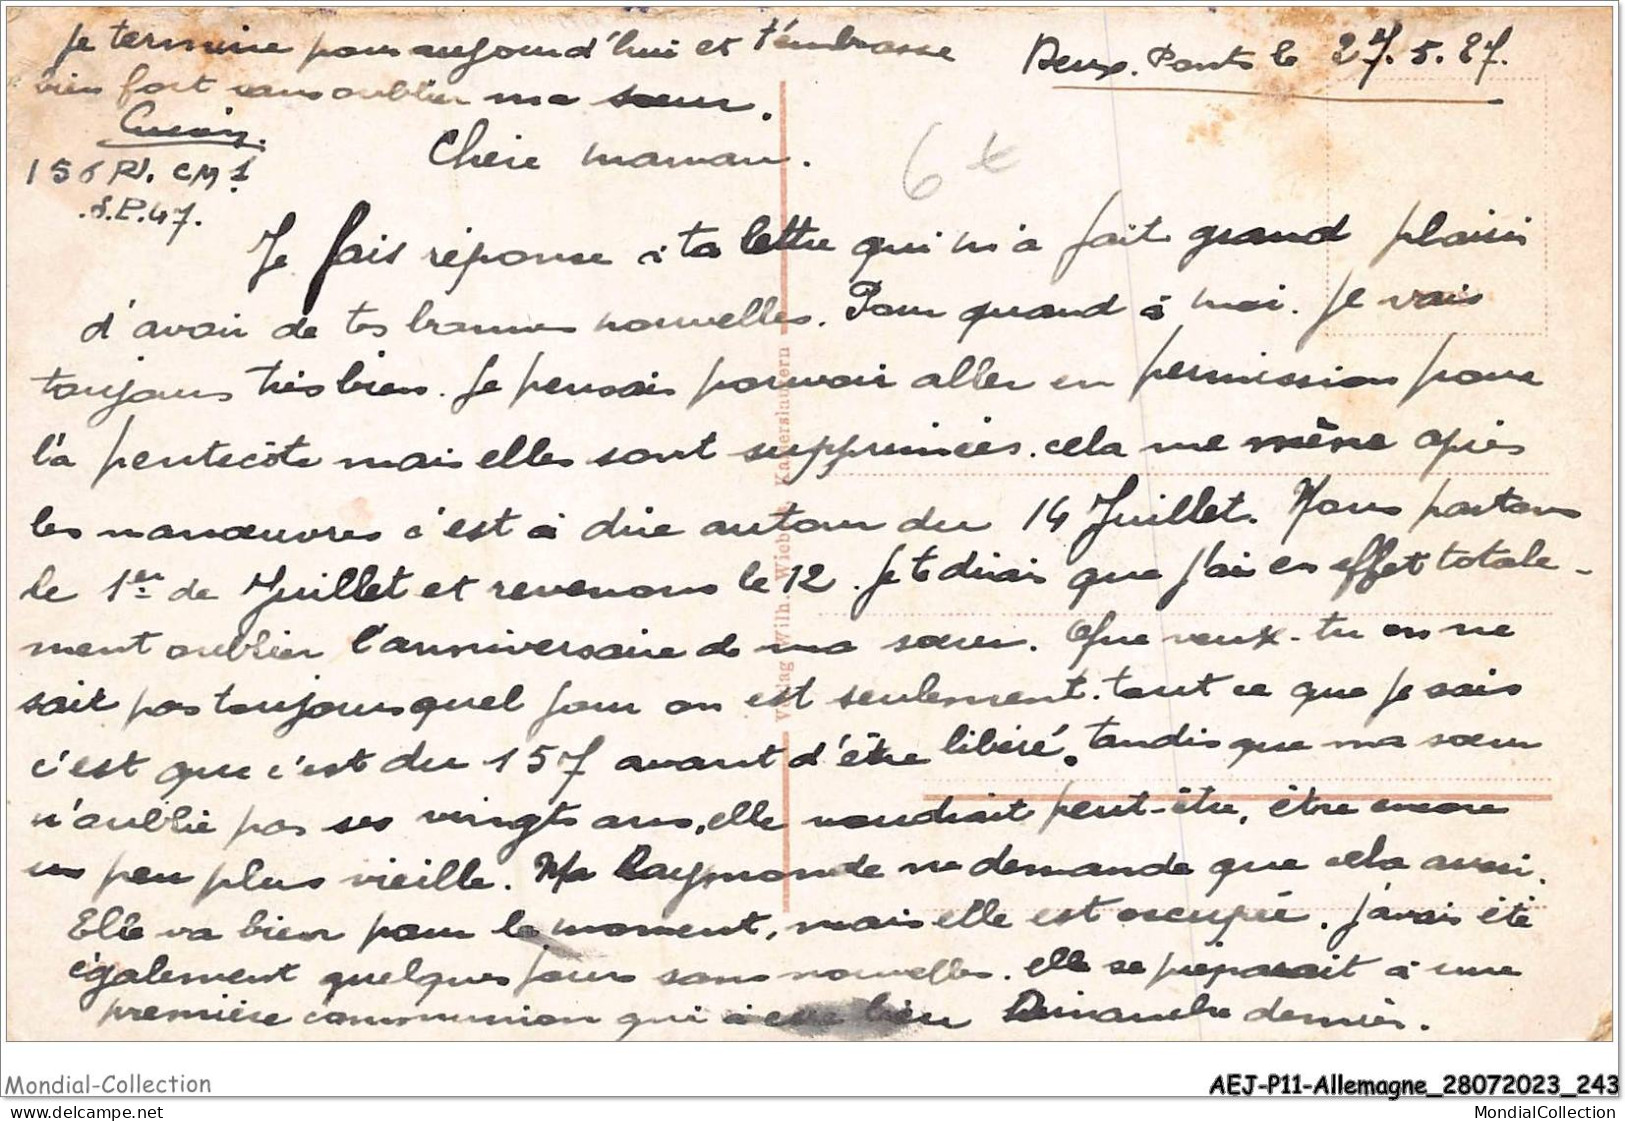 Je termine pour aujourd'hui et t'embrasse
bien fort sans oublier ma sœur.
156 RI. CM1
S.P.47.
Deux-Ponts le 27.5.27.
6€
Chère maman.
Je fais réponse à ta lettre qui m'a fait grand plaisir
d'avoir de tes bonnes nouvelles. Pour quand à moi. Je vais
toujours très bien. Je pensais pouvoir aller en permission pour
la pentecôte mais elles sont supprimées. cela me mène après
les manœuvres c'est à dire autour du 14 Juillet. Nous partons
le 1er de Juillet et revenons le 12. Je te dirais que j'ai en effet totale-
ment oublier l'anniversaire de ma sœur. Que veux-tu on ne
sait pas toujours quel jour on est seulement. tout ce que je sais
c'est que c'est du 157 avant d'être libéré. tandis que ma sœur
n'oublie pas ses vingts ans, elle voudrait peut-être, être encore
un peu plus vieille. Ma Raymonde ne demande que cela aussi.
Elle va bien pour le moment, mais elle est occupée. J'avais été
également quelques jours sans nouvelles. elle se préparait à une
première communion qui a eue lieu Dimanche dernier.
Verlag Wilh. Wieb Kaiserslautern
Mondial-Collection
AEJ-P11-Allemagne_28072023_243
MondialCollection